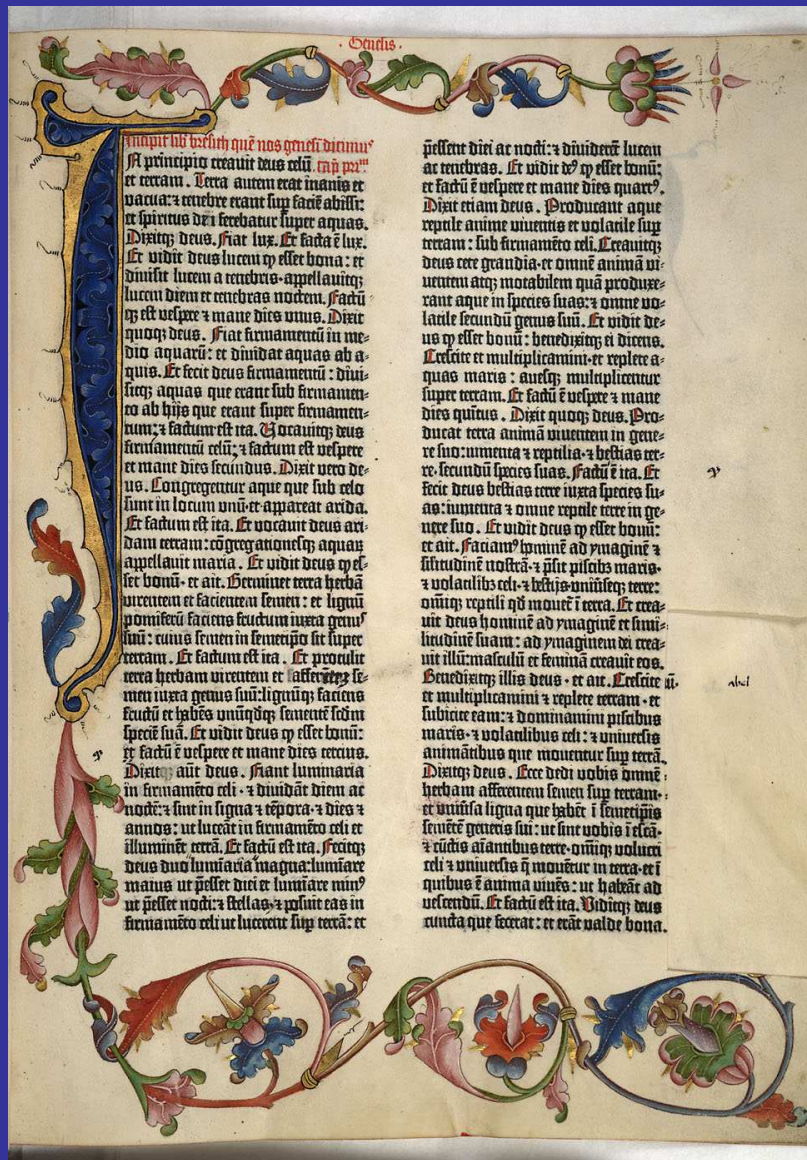 Genesis
Incipit lib' bresith quē nos genesī dicimus
IN principio creauit deus celū cap̄ prim
et terram. Terra autem erat inanis et
vacua: ⁊ tenebre erant sup faciē abissi:
et spiritus dei ferebatur super aquas.
Dixitqꝫ deus. Fiat lux. Et facta ē lux.
Et vidit deus lucem ꝙ esset bona: et
diuisit lucem a tenebris· appellauitqꝫ
lucem diem et tenebras noctem. Factū
qꝫ est vespere ⁊ mane dies vnus. Dixit
quoqꝫ deus. Fiat firmamentū in me-
dio aquarū: et diuidat aquas ab a-
quis. Et fecit deus firmamentū: diui-
sitqꝫ aquas que erant sub firmamen-
to ab hijs que erant super firmamen-
tum: ⁊ factum est ita. Vocauitqꝫ deus
firmamentū celū: ⁊ factum est vespere
et mane dies secundus. Dixit vero de-
us. Congregentur aque que sub celo
sunt in locum vnū· et appareat arida.
Et factum est ita. Et vocauit deus ari-
dam terram: cōgregationesqꝫ aquaꝝ
appellauit maria. Et vidit deus ꝙ es-
set bonū· et ait. Germinet terra herbā
virentem et facientem semen: et lignū
pomiferū faciens fructum iuxta genus
suū: cuius semen in semetip̄o sit super
terram. Et factum est ita. Et protulit
terra herbam virentem et se-
men iuxta genus suū: lignūqꝫ faciens
fructū et habēs vnūqdqꝫ sementē scdm
speciē suā. Et vidit deus ꝙ esset bonū:
et factū ē vespere et mane dies tercius.
Dixit aūt deus. Fiant luminaria
in firmamēto celi· ⁊ diuidāt diem ac
noctē: ⁊ sint in signa ⁊ tēpora· ⁊ dies ⁊
annos: ut luceāt in firmamēto celi et
illuminēt terrā. Et factū est ita. Fecitqꝫ
deus duo luminaria magna: lumīare
maius ut p̄esset diei et lumīare minꝰ
ut p̄esset nocti: ⁊ stellas· ⁊ posuit eas in
firmamēto celi ut lucerent sup terrā: et
p̄essent diei ac nocti: ⁊ diuiderēt lucem
ac tenebras. Et vidit deꝰ ꝙ esset bonū:
et factū ē vespere et mane dies quartꝰ.
Dixit etiam deus. Producant aque
reptile anime viuentis et volatile sup
terram: sub firmamēto celi. Creauitqꝫ
deus cete grandia· et omnē animā vi-
uentem atqꝫ motabilem quā produxe-
rant aque in species suas: ⁊ omne vo-
latile secundū genus suū. Et vidit de-
us ꝙ esset bonū: benedixitqꝫ ei dicens.
Crescite et multiplicamini· et replete a-
quas maris: auesqꝫ multiplicentur
super terram. Et factū ē vespere ⁊ mane
dies quītus. Dixit quoqꝫ deus. Pro-
ducat terra animā viuentem in gene-
re suo: iumenta ⁊ reptilia· ⁊ bestias ter-
re· secundū species suas. Factū ē ita. Et
fecit deus bestias terre iuxta species su-
as: iumenta ⁊ omne reptile terre in ge-
nere suo. Et vidit deus ꝙ esset bonū:
et ait. Faciamꝰ hominē ad ymaginē ⁊
similitudinē nostrā· ⁊ p̄sit piscibꝫ maris·
⁊ volatilibꝫ celi· ⁊ bestijs vniūseqꝫ terre:
omīqꝫ reptili qd mouet ī terra. Et crea-
uit deus hominē ad ymaginē et simi-
litudinē suam: ad ymaginem dei crea-
uit illū: masculū et feminā creauit eos.
Benedixitqꝫ illis deus· et ait. Crescite
et multiplicamini ⁊ replete terram· et
subicite eam: ⁊ dominamini piscibus
maris· ⁊ volatilibus celi: ⁊ vniuersis
animātibus que mouentur sup terrā.
Dixitqꝫ deus. Ecce dedi vobis omnē
herbam afferentem semen sup terram·
et vniūsa ligna que habēt ī semetip̄is
semētē generis sui: ut sint vobis ī escā·
⁊ cūctis aīantibus terre· omīqꝫ volucri
celi ⁊ vniuersis q̄ mouētur in terra· et ī
quibus ē anima viuēs: ut habeāt ad
vescendū. Et factū est ita. Viditqꝫ deus
cuncta que fecerat: et erāt valde bona.